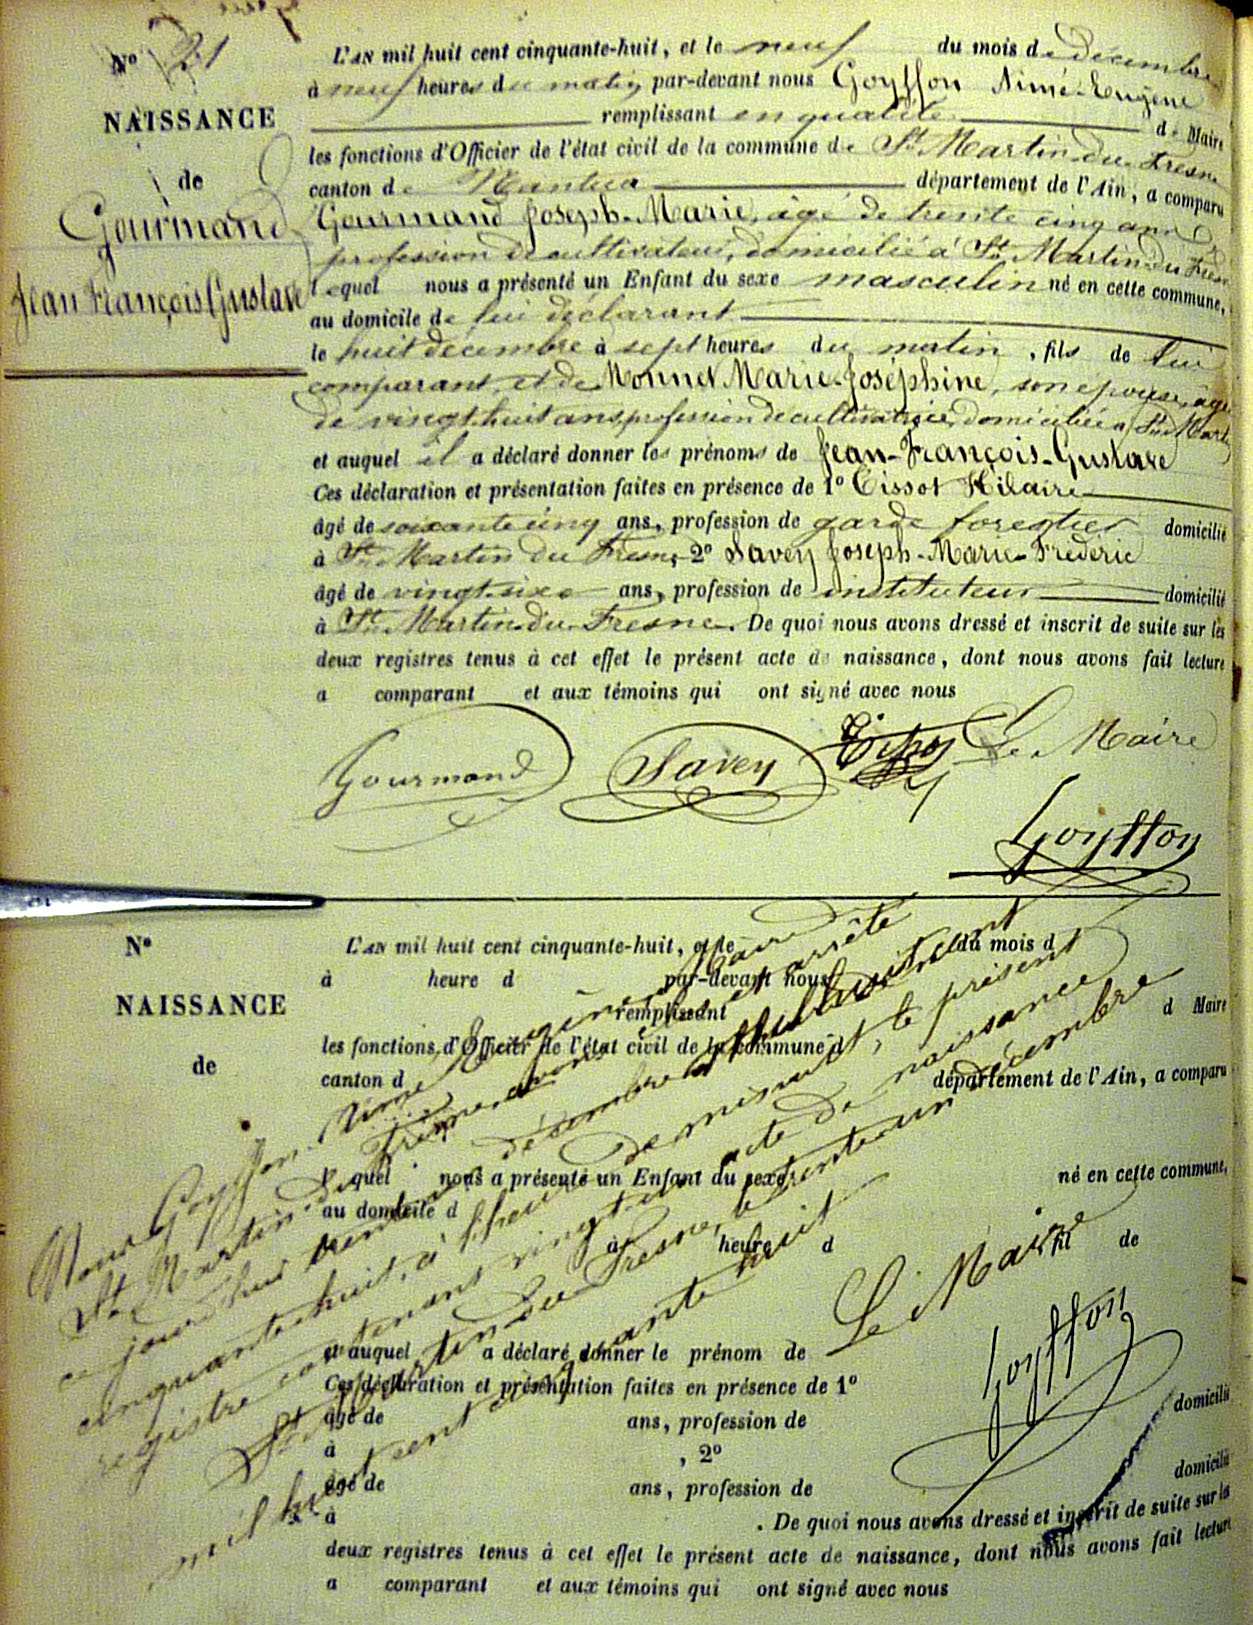 N° 21
NAISSANCE
de
Gourmand
Jean François Gustave
L'AN mil huit cent cinquante-huit, et le neuf du mois de décembre
à neuf heures du matin par-devant nous Goyffon Aimé-Eugène
remplissant en qualité de Maire
les fonctions d'Officier de l'état civil de la commune de St Martin du Fresne
canton de Nantua département de l'Ain, a comparu
Gourmand Joseph-Marie, âgé de trente cinq ans
profession de cultivateur, domicilié à St Martin du Fresne
lequel nous a présenté un Enfant du sexe masculin né en cette commune,
au domicile de lui déclarant
le huit décembre à sept heures du matin, fils de lui
comparant, et de Monnet Marie-Joséphine, son épouse, âgée
de vingt huit ans, profession de cultivatrice, domiciliée à St Martin
et auquel il a déclaré donner les prénoms de Jean-François-Gustave
Ces déclaration et présentation faites en présence de 1° Tissot Hilaire
âgé de soixante cinq ans, profession de garde forestier domicilié
à St Martin du Fresne, 2° Savey Joseph-Marie-Frédéric
âgé de vingt-six ans, profession de instituteur domicilié
à St Martin du Fresne. De quoi nous avons dressé et inscrit de suite sur les
deux registres tenus à cet effet le présent acte de naissance, dont nous avons fait lecture
a comparant et aux témoins qui ont signé avec nous
Gourmand Savey Tissot Le Maire
Goyffon
N°
NAISSANCE
de
L'AN mil huit cent cinquante-huit, et le du mois d
à heure d par-devant nous
remplissant d Maire
les fonctions d'Officier de l'état civil de la commune d
canton d département de l'Ain, a comparu
l quel nous a présenté un Enfant du sexe né en cette commune,
au domicile d
le à heure d , fil de
et auquel a déclaré donner le prénom de
Ces déclaration et présentation faites en présence de 1°
âgé de ans, profession de domicilié
à , 2°
âgé de ans, profession de domicilié
à . De quoi nous avons dressé et inscrit de suite sur les
deux registres tenus à cet effet le présent acte de naissance, dont nous avons fait lecture
a comparant et aux témoins qui ont signé avec nous
Nous Goyffon Aimé Eugène, Maire de
St Martin du Fresne avons clos et arrêté
ce jourd'hui trente un décembre mil huit cent
cinquante huit, à l'heure de minuit, le présent
registre contenant vingt un acte de naissance
St Martin du Fresne, le trente un décembre
mil huit cent cinquante huit
Le Maire
Goyffon